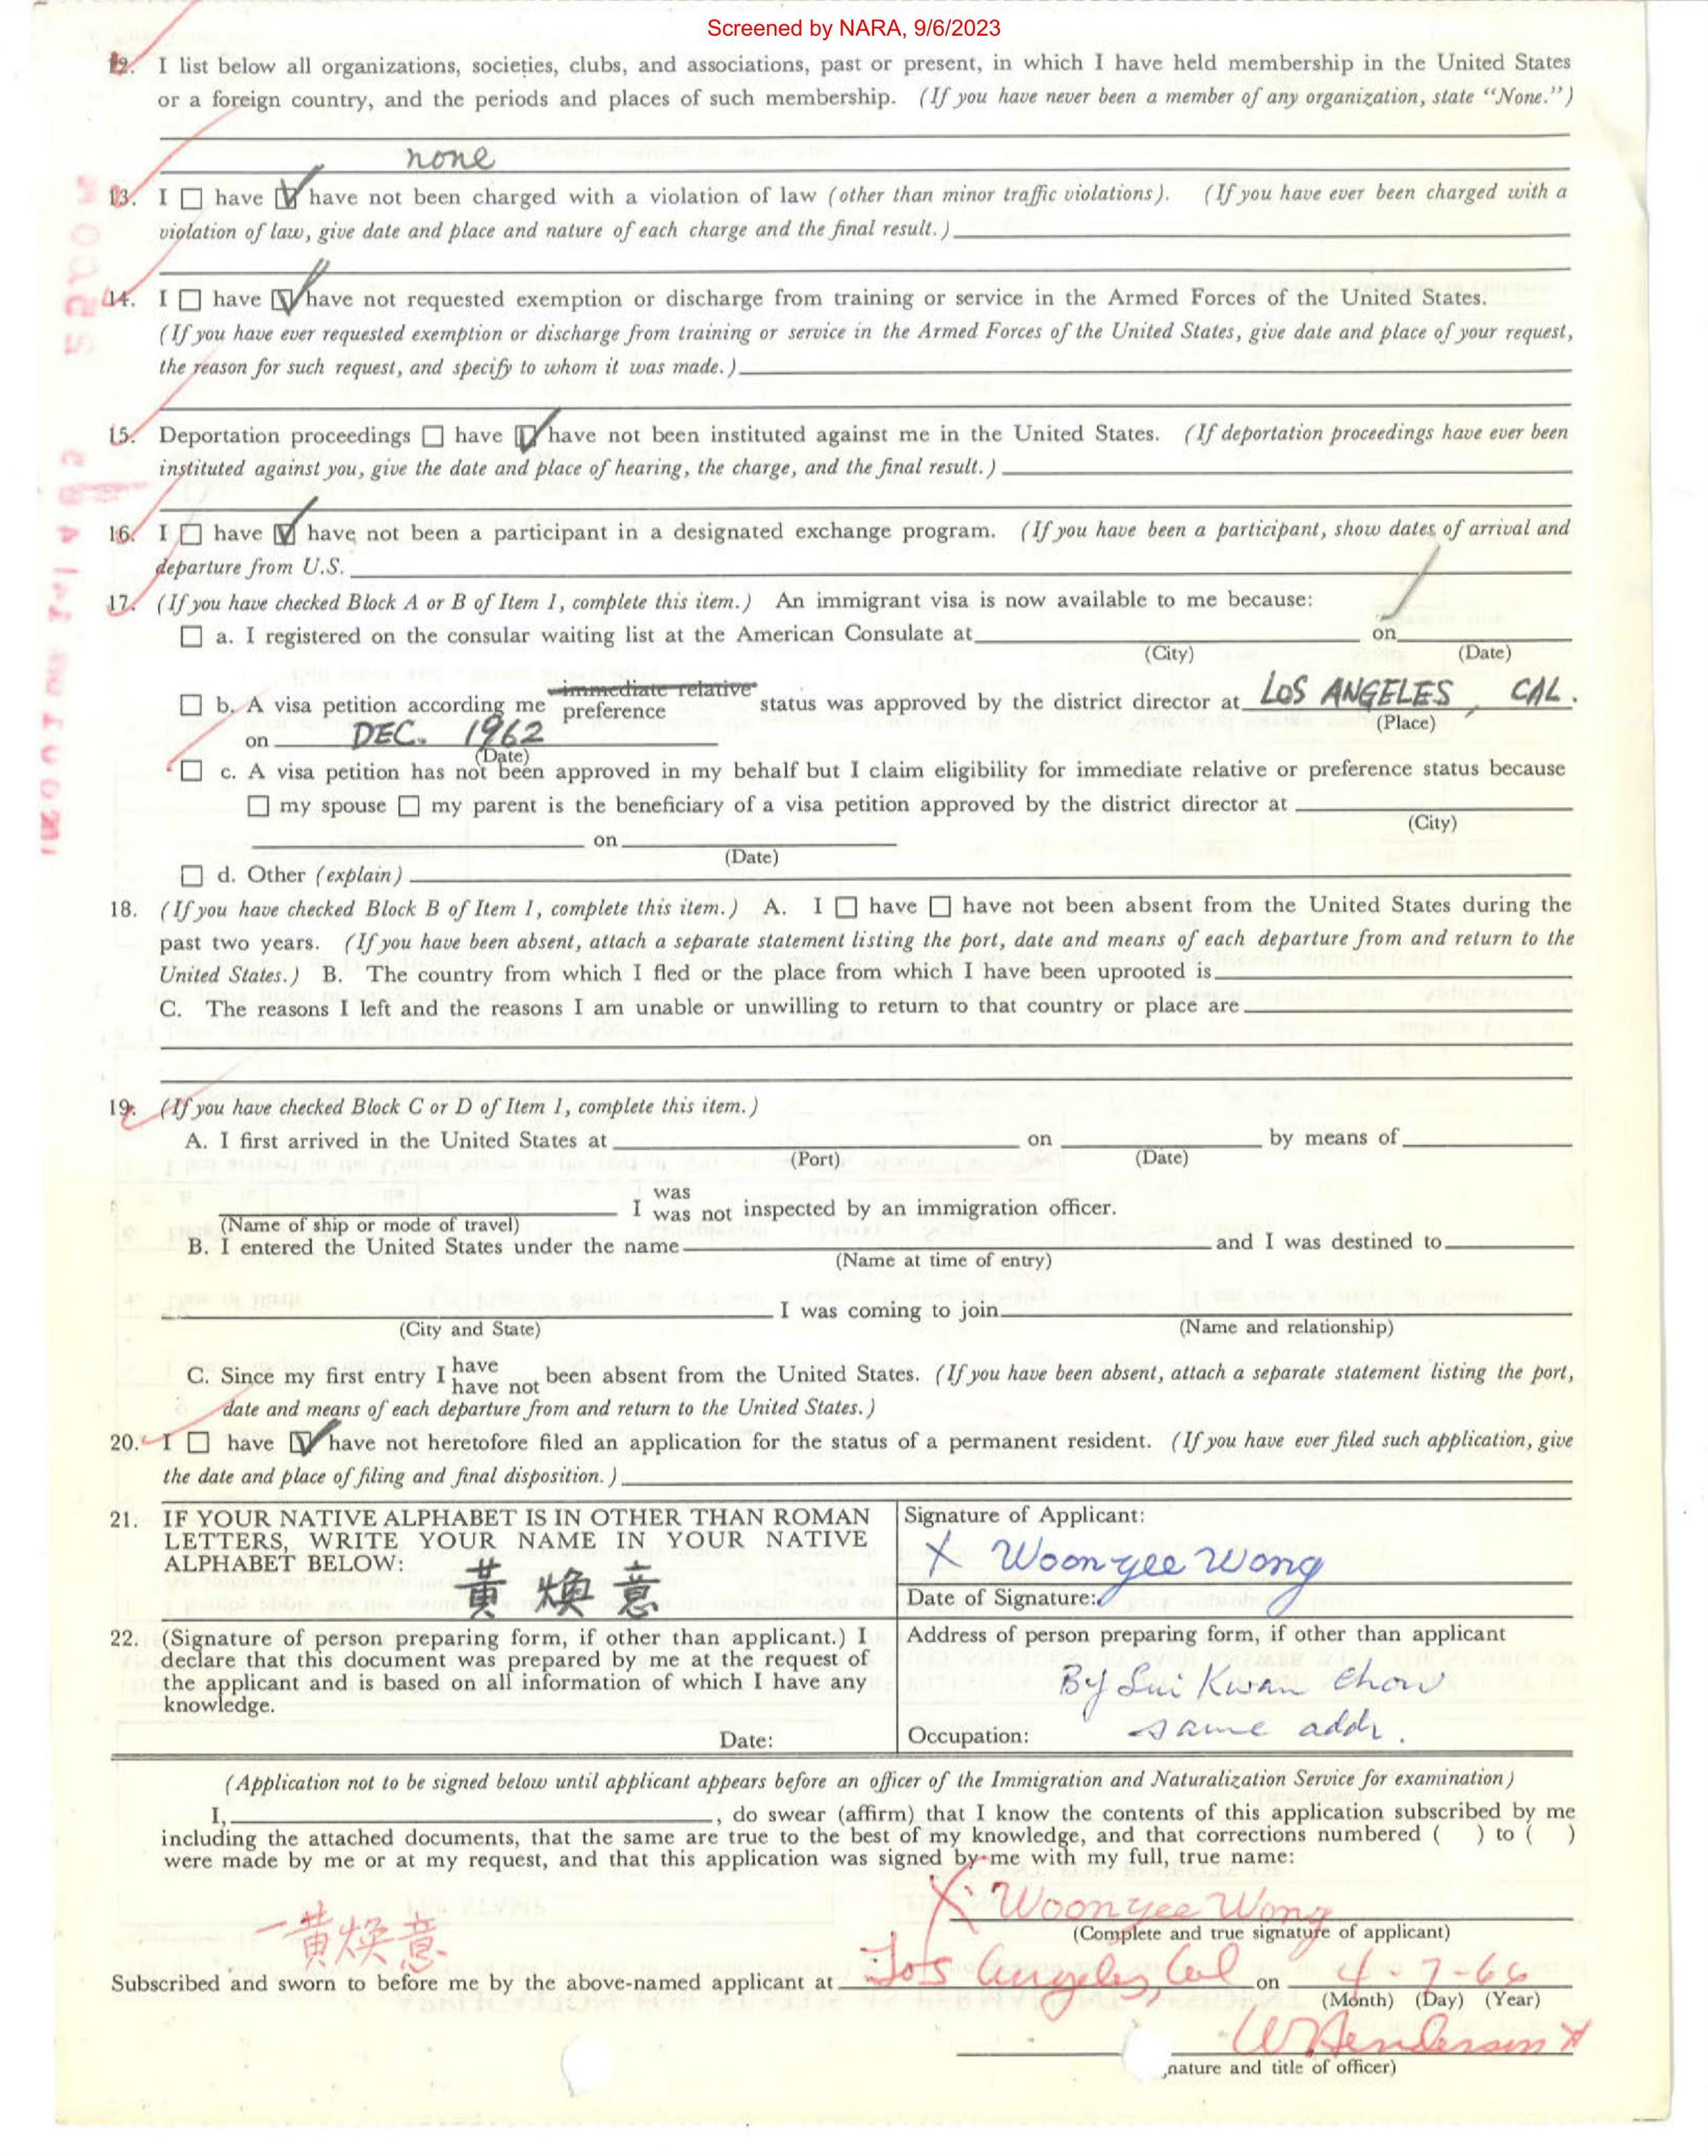 Screened by NARA, 9/6/2023
12. I list below all organizations, societies, clubs, and associations, past or present, in which I have held membership in the United States
or a foreign country, and the periods and places of such membership. (If you have never been a member of any organization, state "None.")
none
13. I ☐ have ☑ have not been charged with a violation of law (other than minor traffic violations). (If you have ever been charged with a
violation of law, give date and place and nature of each charge and the final result.)
14. I ☐ have ☑ have not requested exemption or discharge from training or service in the Armed Forces of the United States.
(If you have ever requested exemption or discharge from training or service in the Armed Forces of the United States, give date and place of your request,
the reason for such request, and specify to whom it was made.)
15. Deportation proceedings ☐ have ☑ have not been instituted against me in the United States. (If deportation proceedings have ever been
instituted against you, give the date and place of hearing, the charge, and the final result.)
16. I ☐ have ☑ have not been a participant in a designated exchange program. (If you have been a participant, show dates of arrival and
departure from U.S.
17. (If you have checked Block A or B of Item 1, complete this item.) An immigrant visa is now available to me because:
☐ a. I registered on the consular waiting list at the American Consulate at on
(City) (Date)
☐ b. A visa petition according me immediate relative preference status was approved by the district director at LOS ANGELES, CAL.
(Place)
on DEC. 1962
(Date)
☐ c. A visa petition has not been approved in my behalf but I claim eligibility for immediate relative or preference status because
☐ my spouse ☐ my parent is the beneficiary of a visa petition approved by the district director at
(City)
on
(Date)
☐ d. Other (explain)
18. (If you have checked Block B of Item 1, complete this item.) A. I ☐ have ☐ have not been absent from the United States during the
past two years. (If you have been absent, attach a separate statement listing the port, date and means of each departure from and return to the
United States.) B. The country from which I fled or the place from which I have been uprooted is
C. The reasons I left and the reasons I am unable or unwilling to return to that country or place are
19. (If you have checked Block C or D of Item 1, complete this item.)
A. I first arrived in the United States at on by means of
(Port) (Date)
I was was not inspected by an immigration officer.
(Name of ship or mode of travel)
B. I entered the United States under the name and I was destined to
(Name at time of entry)
I was coming to join
(City and State) (Name and relationship)
C. Since my first entry I have have not been absent from the United States. (If you have been absent, attach a separate statement listing the port,
date and means of each departure from and return to the United States.)
20. I ☐ have ☑ have not heretofore filed an application for the status of a permanent resident. (If you have ever filed such application, give
the date and place of filing and final disposition.)
21. IF YOUR NATIVE ALPHABET IS IN OTHER THAN ROMAN
LETTERS, WRITE YOUR NAME IN YOUR NATIVE
ALPHABET BELOW:
黃煥意
Signature of Applicant:
X Woon yee Wong
Date of Signature:
22. (Signature of person preparing form, if other than applicant.) I
declare that this document was prepared by me at the request of
the applicant and is based on all information of which I have any
knowledge.
Date:
Address of person preparing form, if other than applicant
By Sui Kwan Chow
same addr.
Occupation:
(Application not to be signed below until applicant appears before an officer of the Immigration and Naturalization Service for examination)
I, , do swear (affirm) that I know the contents of this application subscribed by me
including the attached documents, that the same are true to the best of my knowledge, and that corrections numbered ( ) to ( )
were made by me or at my request, and that this application was signed by me with my full, true name:
X Woon yee Wong
(Complete and true signature of applicant)
黃煥意
Subscribed and sworn to before me by the above-named applicant at Los Angeles, Cal on 4-7-66
(Month) (Day) (Year)
W Henderson
nature and title of officer)